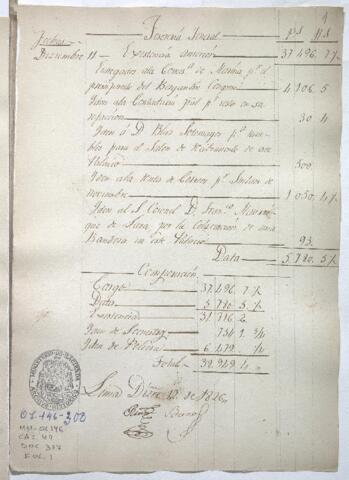 Fechas Tesoreria General p.s r.s
Diziembre 11 - Existencia anterior 37,496. 7 ½
Entregados ala Comis.n de Marina p.r el
principal del Bergantin Congreso 4,106. 5
Idem ala Contaduria gral p.r resto en su
refaccion 30 4
Idem á D. Blas Sotomayor p.r mue-
bles para el Salon de Recibimiento de este
Palacio 500.
Idem ala Renta de Correos p.r Sueldos de
Noviembre 1,050. 4 ½
Idem al S. Coronel D. Fran.co Manri-
que de Lara, por la colocacion de una
Bandera en este Palacio 93.
Data 5,780. 5 ½
Comparacion
Cargo 37,496. 7 ½
Data 5,780. 5 ½
Existencia 31,716. 2
Idem de Secuestros 754 1 ¾
Idem de Policia 6,479.
Total 38,949. 4
Lima Diz.e 12 de 1826
MINISTERIO DE HACIENDA
O.L. 146-300
MH-OL 146
CAJ. 49
DOC 317
FOL. 1